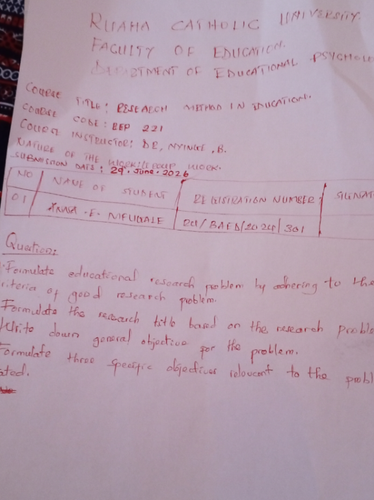 RUAHA CATHOLIC UNIVERSITY
FACULTY OF EDUCATION.
DEPARTMENT OF EDUCATIONAL PSYCHOLO
COURSE TITLE: RESEARCH METHOD IN EDUCATION.
COURSE CODE: BEP 221
COURSE INSTRUCTOR: DR, NYINGE, B.
NATURE OF THE WORK: GROUP WORK.
SUBMISSION DATE: 29. June. 2026
NO NAME OF STUDENT REGISTRATION NUMBER SIGNAT
01 E. 301
Question:
Formulate educational research problem by adhering to the
riteria of good research poblem.
Formulate the research title based on the research proble
Write down general objective for the problem.
Formulate three specific objectives relevant to the probl
ated.